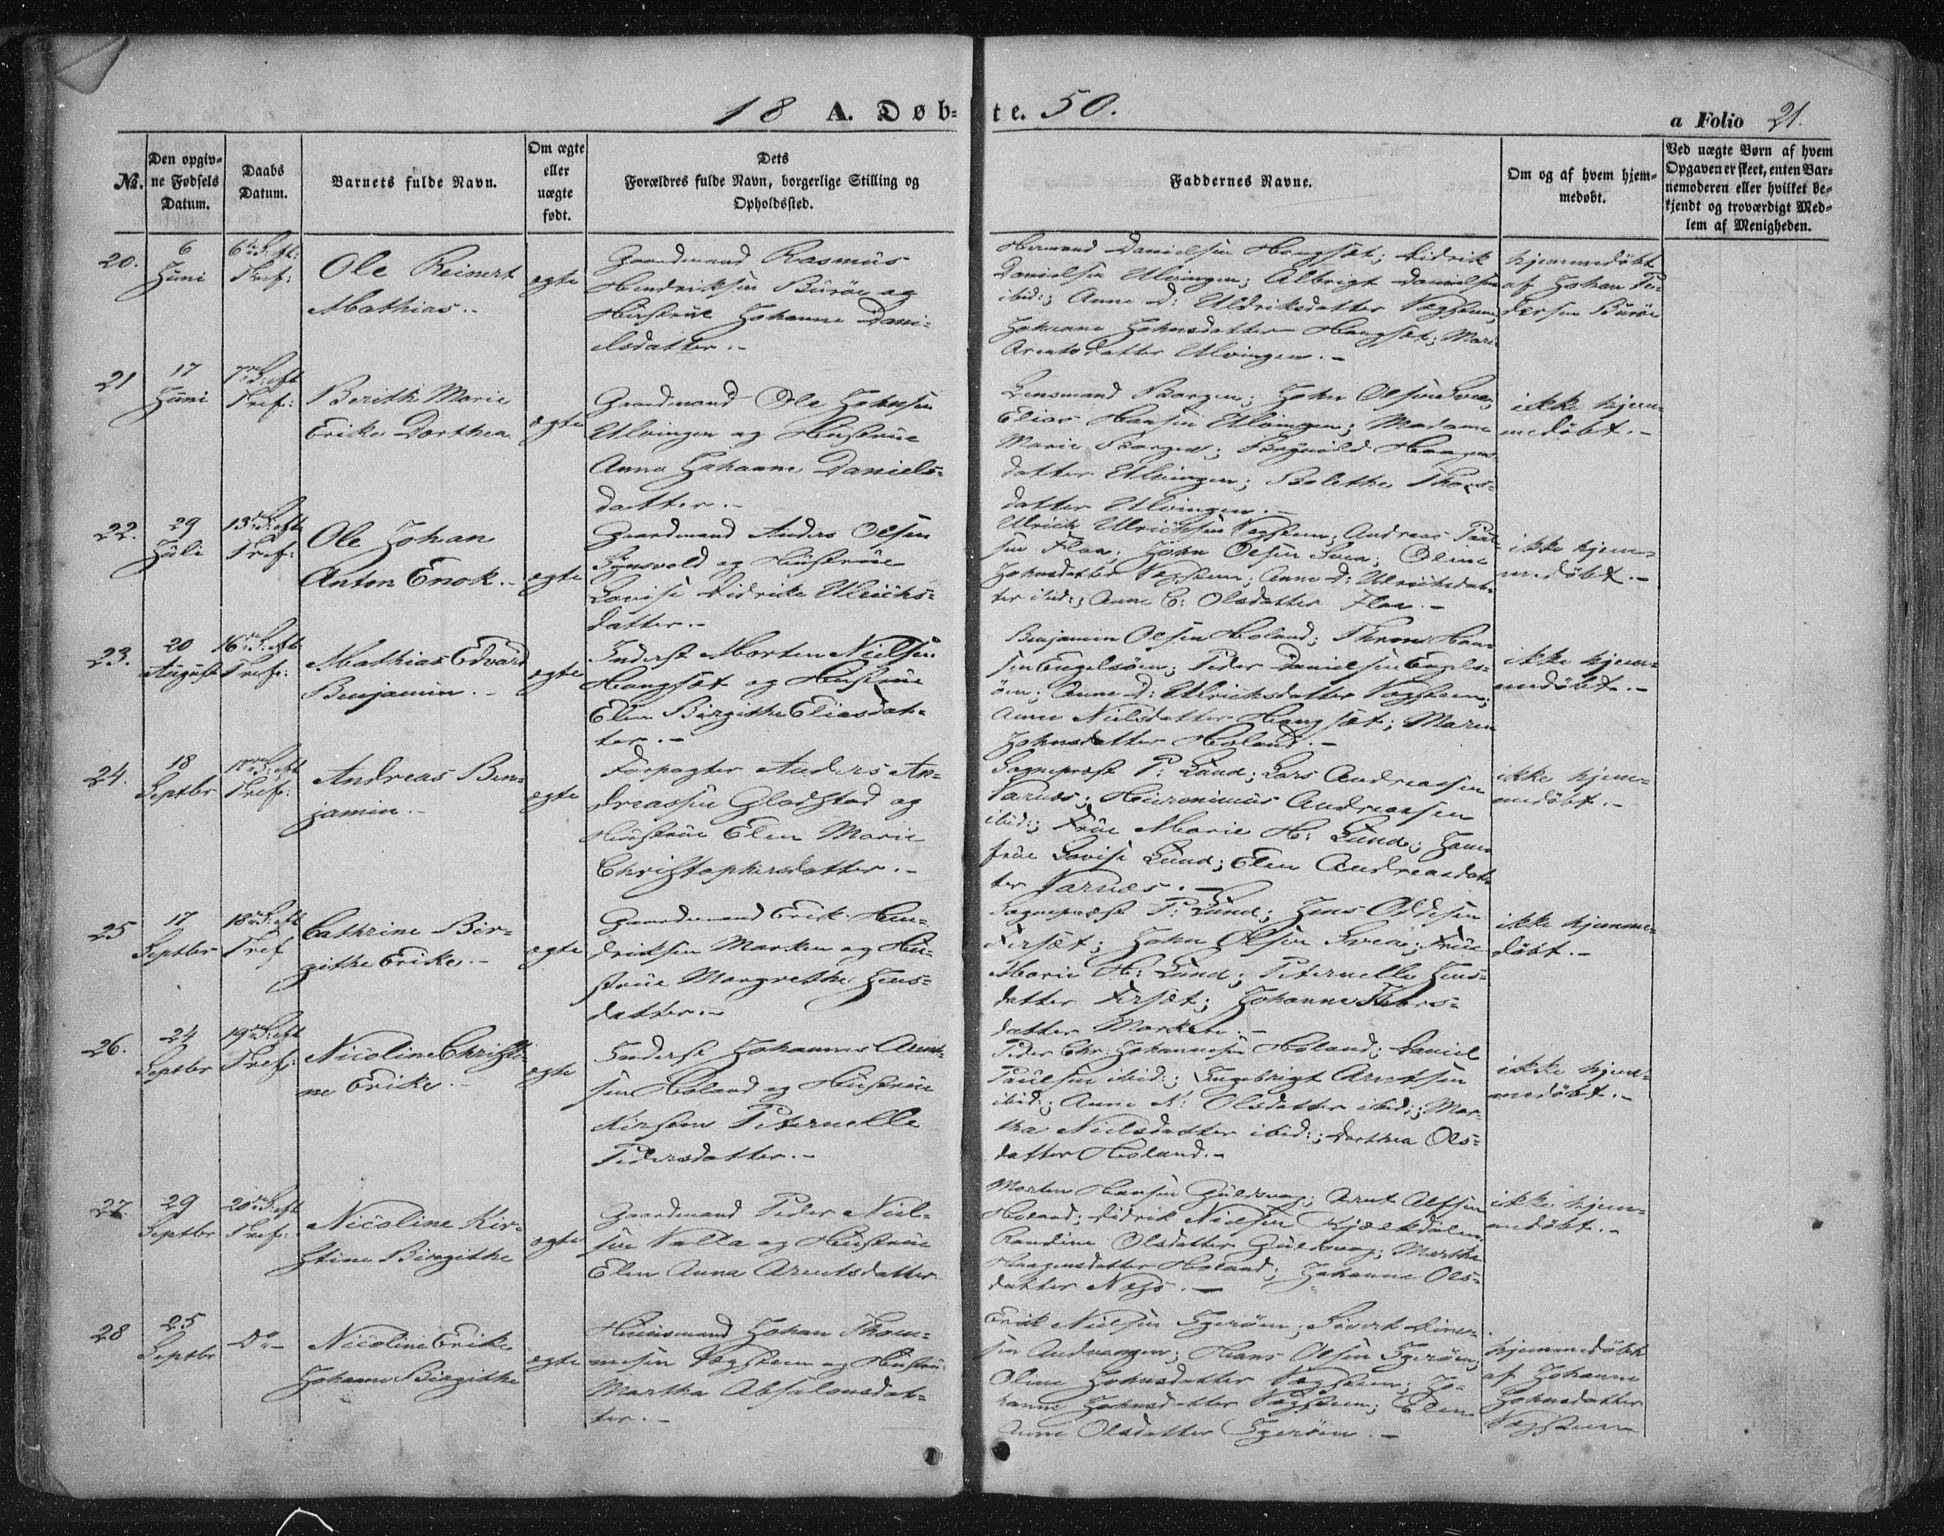 18 A. Døb= te. 50.
a Folio 21.
No.
Den opgiv=
ne Fødsels
Datum.
Daabs
Datum.
Barnets fulde Navn.
Om ægte
eller
uægte
født.
Dets
Forældres fulde Navn, borgerlige Stilling og
Opholdssted.
Faddernes Navne.
Om og af hvem hjem=
medøbt.
Ved uægte Børn af hvem
Opgaven er skeet, enten Bar=
nemoderen eller hvilket be=
kjendt og troværdigt Med=
lem af Menigheden.
20.
6
Juni
Tref:
Ole Reinert
Mathias.
ægte
Gaardmand Rasmus
Hendriksen Burøe og
Hustrue Johanne Dani=
elsdatter.
Hermand Danielsen Hongset; Didrik
Danielsen Ulvingen; Albrigt Danielsen
ibid:; Anne D: Uldriksdatter
Johanne Johnsdatter Hongset; Mari
Arentsdatter Ulvingen.
hjemmedøbt
af Johan Pe=
dersen Burøe
21
17
Juni
Tref:
Berith Marie
Erike Dorthea
ægte
Gaardmand Ole Johnsen
Ulvingen og Hustrue
Anna Johanne Daniels=
datter.
Lensmand Borgen; John Olsen
Elias Hansen Ulvingen; Madame
Marie Borgen; Haagens=
datter Ulvingen; Bolethe Thors=
datter Ulvingen.
ikke hjem=
medøbt.
22.
29
Juli
Tref:
Ole Johan
Anton Enok.
ægte
Gaardmand Anders Olsen
og Hustrue
Lovise Didrike Ulrichs=
datter.
Ulrich Ulrichsen Andreas Paul=
sen Flaa; John Olsen Oline
Johnsdatter Anne D: Ulrichsdat=
ter ibid:; Anne C: Olsdatter Flaa.
ikke hjem=
medøbt.
23.
20
August
Tref:
Mathias Edvard
Benjamin.
ægte
Inderst Morten Nielsen
Hongset og Hustrue
Elen Birgithe Eliasdat=
ter.
Benjamin Olsen Holand; Thron Han=
sen Engelsøen; Peder Danielsen Engels=
øen; Anne D: Ulriksdatter
Anne Nielsdatter Hongset; Maren
Johnsdatter Holand.
ikke hjem=
medøbt.
24.
18
Septbr
Tref:
Andreas Ben=
jamin.
ægte
Forpagter Anders An=
dreassen Gladstad og
Hustrue Elen Marie
Christophersdatter.
Sognepræst P: Lund; Lars Andreassen
Varnes; Hieronimus Andreassen
ibid:; Frue Marie H: Lund; Jom=
frue Lovise Lund; Elen Andreasdat=
ter Varnes.
ikke hjem=
medøbt.
25
17
Septbr
Tref
Cathrine Bir=
githe Erike.
ægte
Gaardmand Erik Hen=
driksen Marken og Hu=
strue Margrethe Jens=
datter.
Sognepræst P: Lund; Jens Oddesen
John Olsen Frue
Marie H: Lund; Peternelle Jens=
datter Johanne Thors=
datter Marken.
ikke hjemme=
døbt.
26.
24
Septbr
Tref:
Nicoline Christi=
ne Erike.
ægte
Inderst Johannes Arent=
sen Holand og Hustrue
Peternelle
Pedersdatter.
Peder Chr: Johannesen Holand; Daniel
Paulsen ibid:; Engebrigt Arntsen
ibid:; Anne Olsdatter ibid:; Mar=
tha Nielsdatter ibid:; Dorthea Ols=
datter Holand.
ikke hjem=
medøbt.
27.
29
Septbr
Tref:
Nicoline Kir=
stine Birgithe
ægte
Gaardmand Peder Niel=
sen og Hustrue
Elen Anna Arentsdatter
Morten Hansen Guldsvog; Arnt Olsen
Holand; Didrik Nielsen
Olsdatter Guldsvog; Martha
Haagensdatter Holand; Johanne Ols=
datter
ikke hjem=
medøbt.
28
25
Septbr
Do
Nicoline Erike
Johanne Birgithe
ægte
Huusmand Johan Thom=
mesen og Hustrue
Martha Absalonsdat=
ter.
Erik Nielsen Sivert
Hans Olsen
Oline Johnsdatter Jo=
hanne Johnsdatter Elen
Anne Olsdatter
hjemmedøbt
af Johanne
Johnsdatter